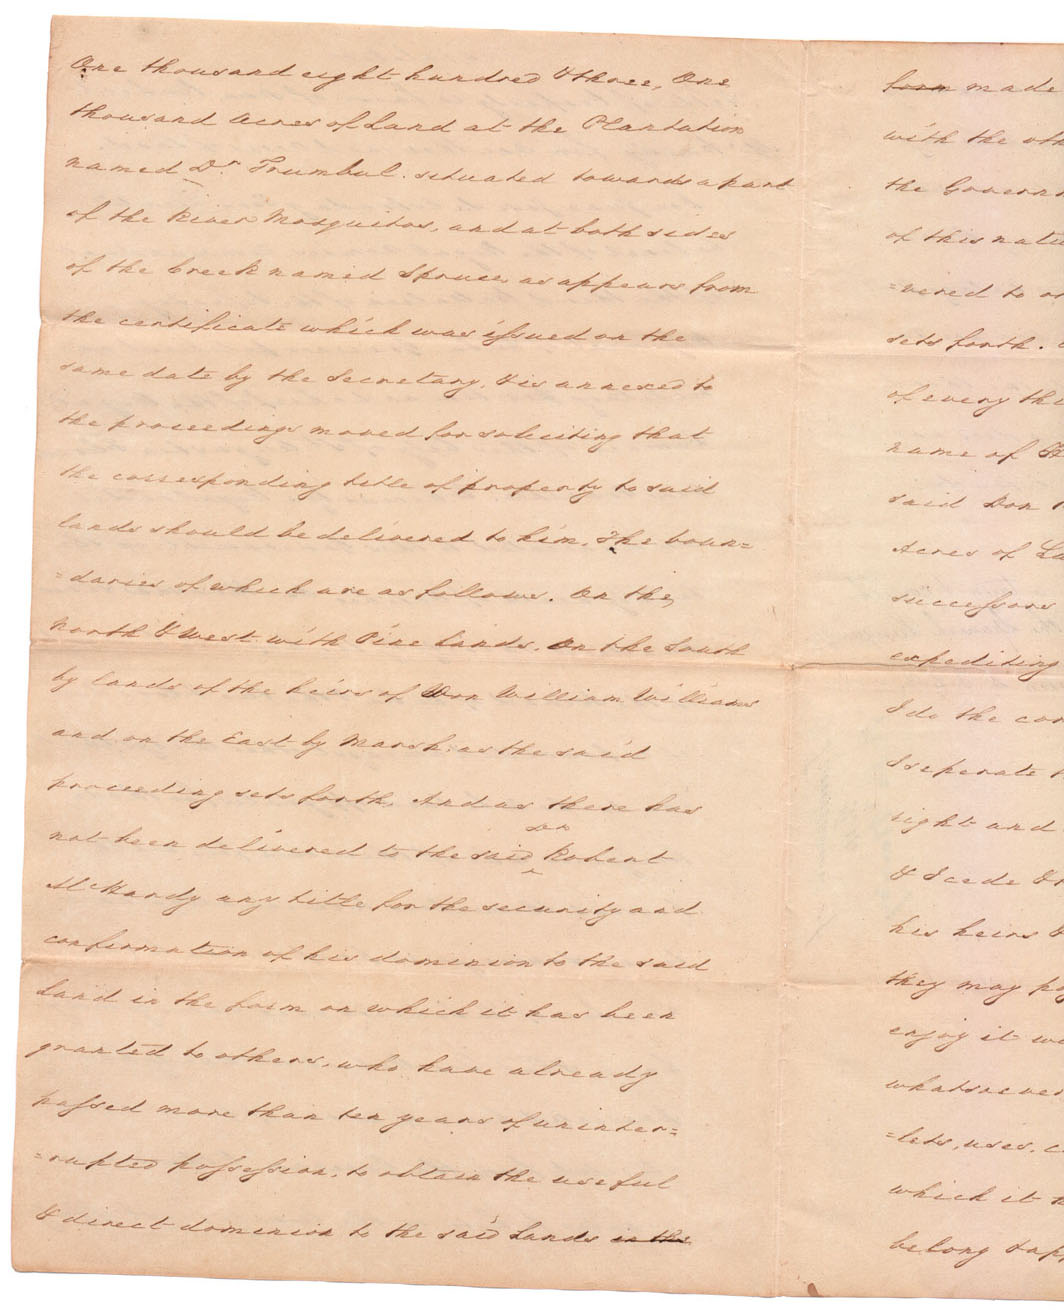 One thousand eight hundred & three, One
thousand Acres of Land at the Plantation
named Dr. Trumbul. situated towards a part
of the River Mosquitos, and at both sides
of the Creek named Spruce, as appears from
the certificate which was issued on the
same date by the Secretary, & is annexed to
the proceedings moved for soliciting that
the corresponding title of property to said
lands should be delivered to him. The boun=
=daries of which are as follows. On the,
North & West with Pine Lands. On the South
by lands of the heirs of Don William Williams
and on the East by Marsh. as the said
proceeding sets forth. And as there has
not been delivered to the said Don Robert
McHardy any title for the security and
confirmation of his dominion to the said
Land in the form on which it has been
granted to others, who have already
passed more than ten years of uninter=
=rupted possession, to obtain the useful
& direct dominion to the said Lands in the
form made
with the oth
the Govern
of this nat
=vered to
sets forth.
of every thi
name of
said Don
Acres of La
successors
expediting
I do the co
& seperate
right and
& I cede &
his heirs &
they may po
enjoy it w
whatsoever
=lets, uses, c
which it
belong & app